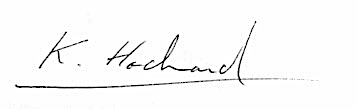 K. Hochard